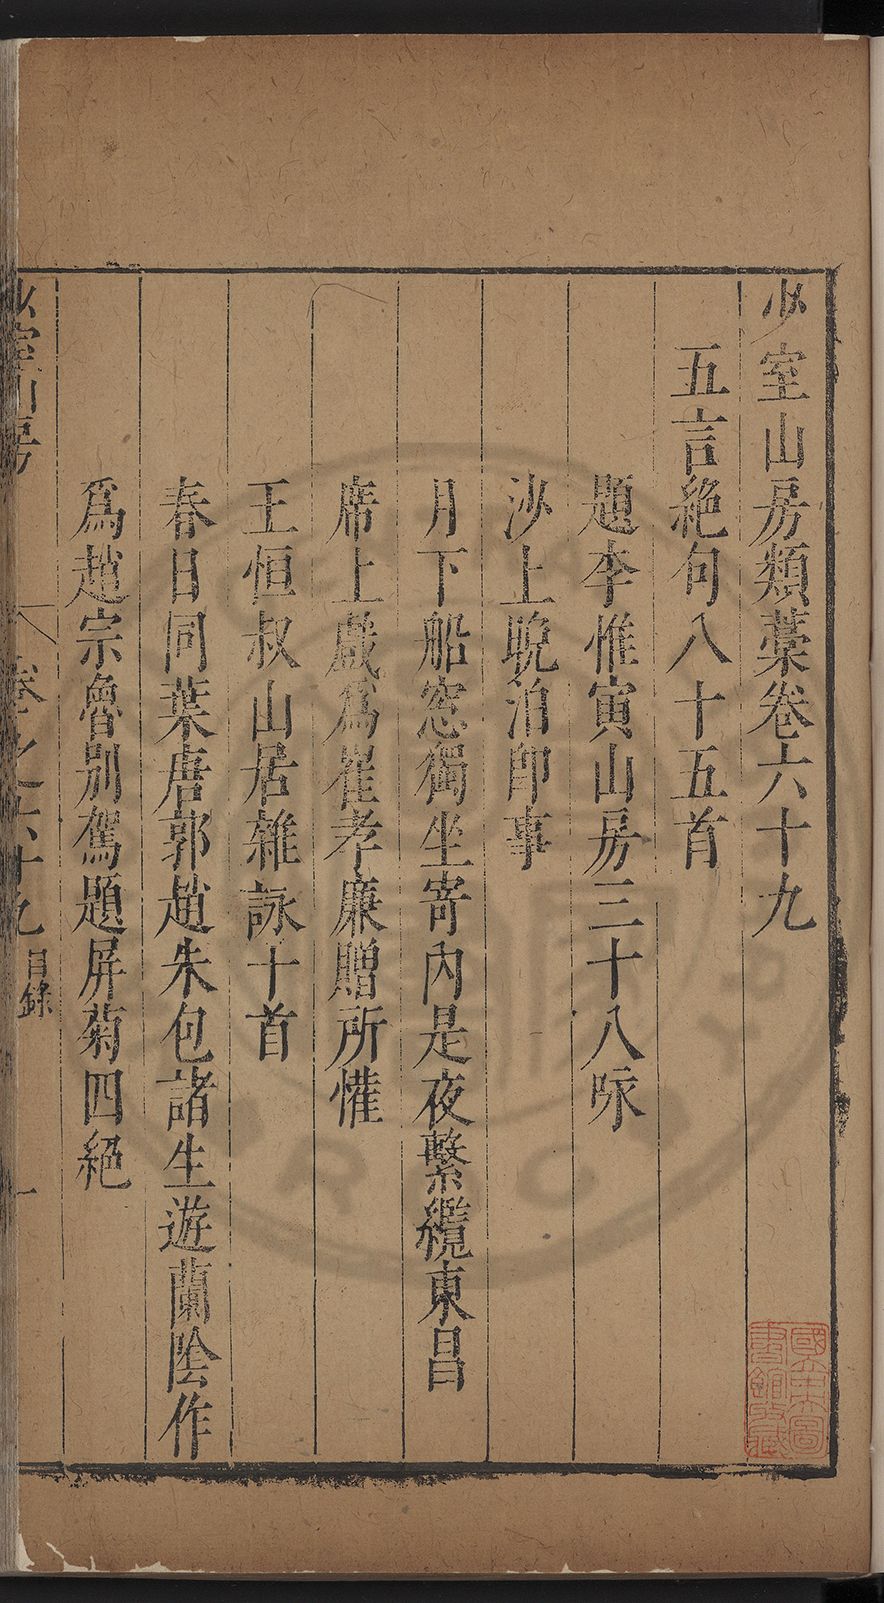 少室山房類藁卷六十九
五言絕句八十五首
題李惟寅山房三十八咏
沙上晚泊即事
月下船窓獨坐寄內是夜繫纜東昌
席上戲爲崔孝廉贈所懽
王恒叔山居雜詠十首
春日同葉唐郭趙朱包諸生遊蘭陰作
爲趙宗魯別駕題屏菊四絕
少室山房
卷之六十九 目錄
一
國立中央圖書館收藏